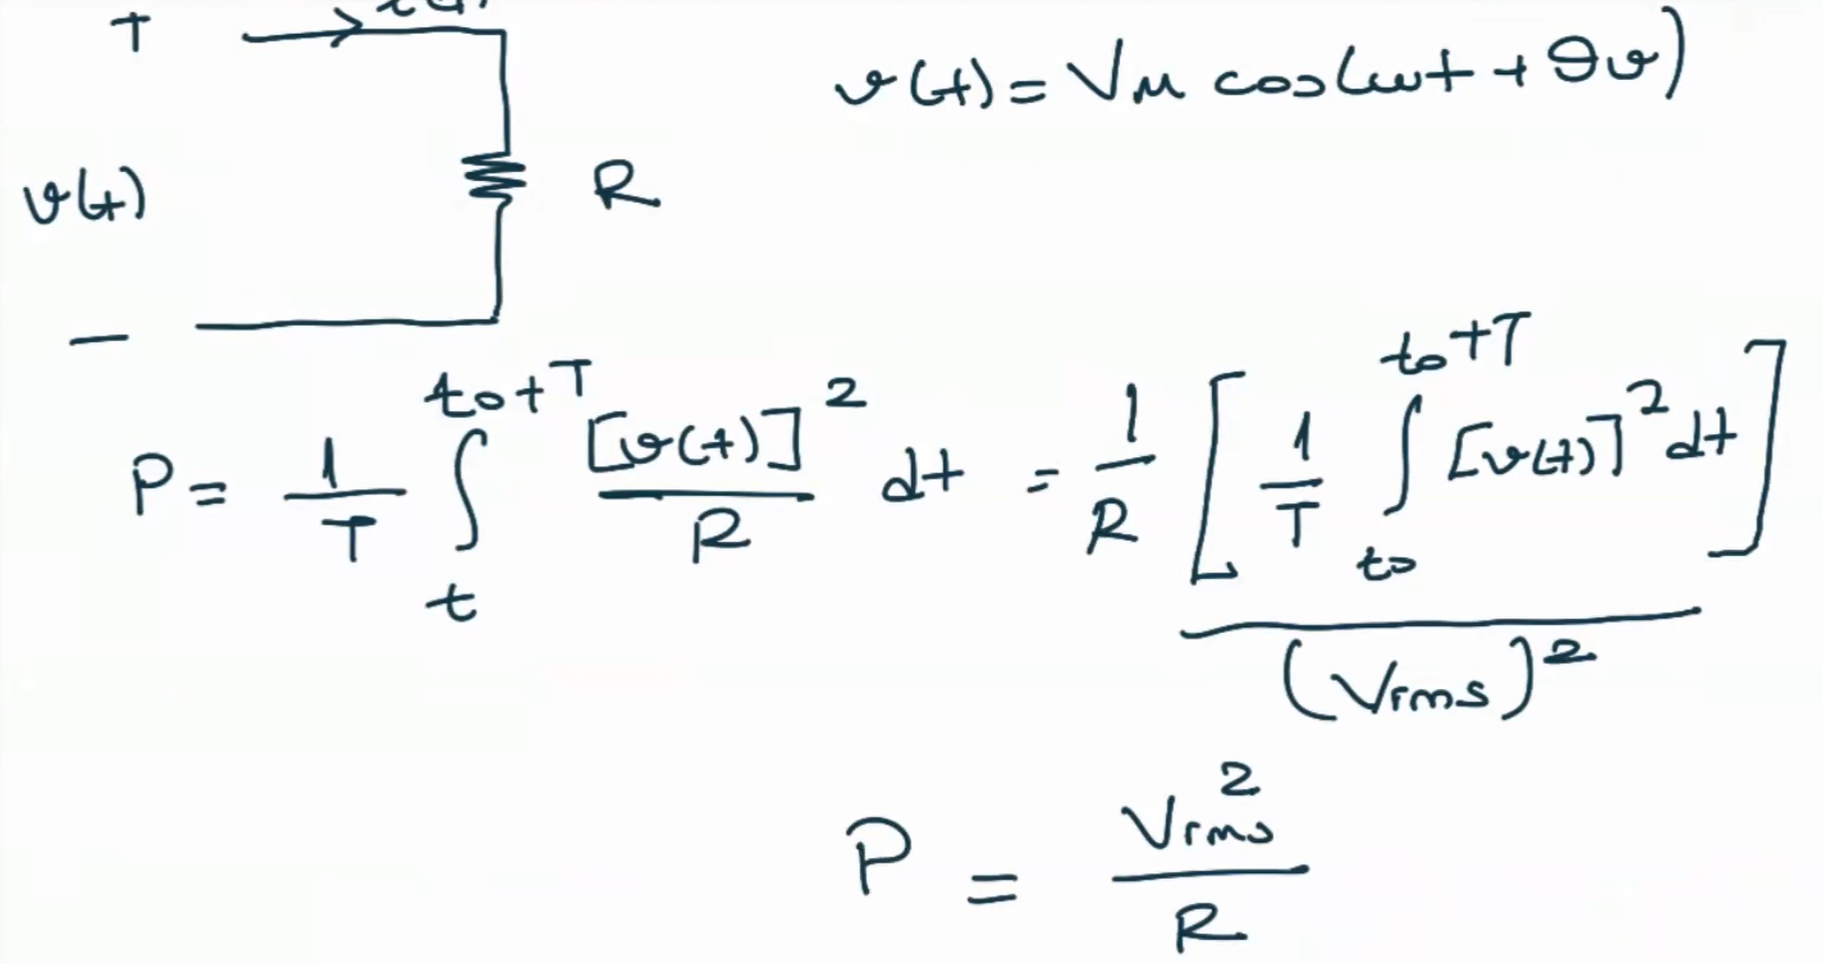 + i(t)
v(t) = VM cos(ωt + θv)
v(t) R
−
P = 1/T ∫_t^{t0+T} [v(t)]^2/R dt = 1/R [1/T ∫_{t0}^{t0+T} [v(t)]^2 dt]
(Vrms)^2
P = Vrms^2/R